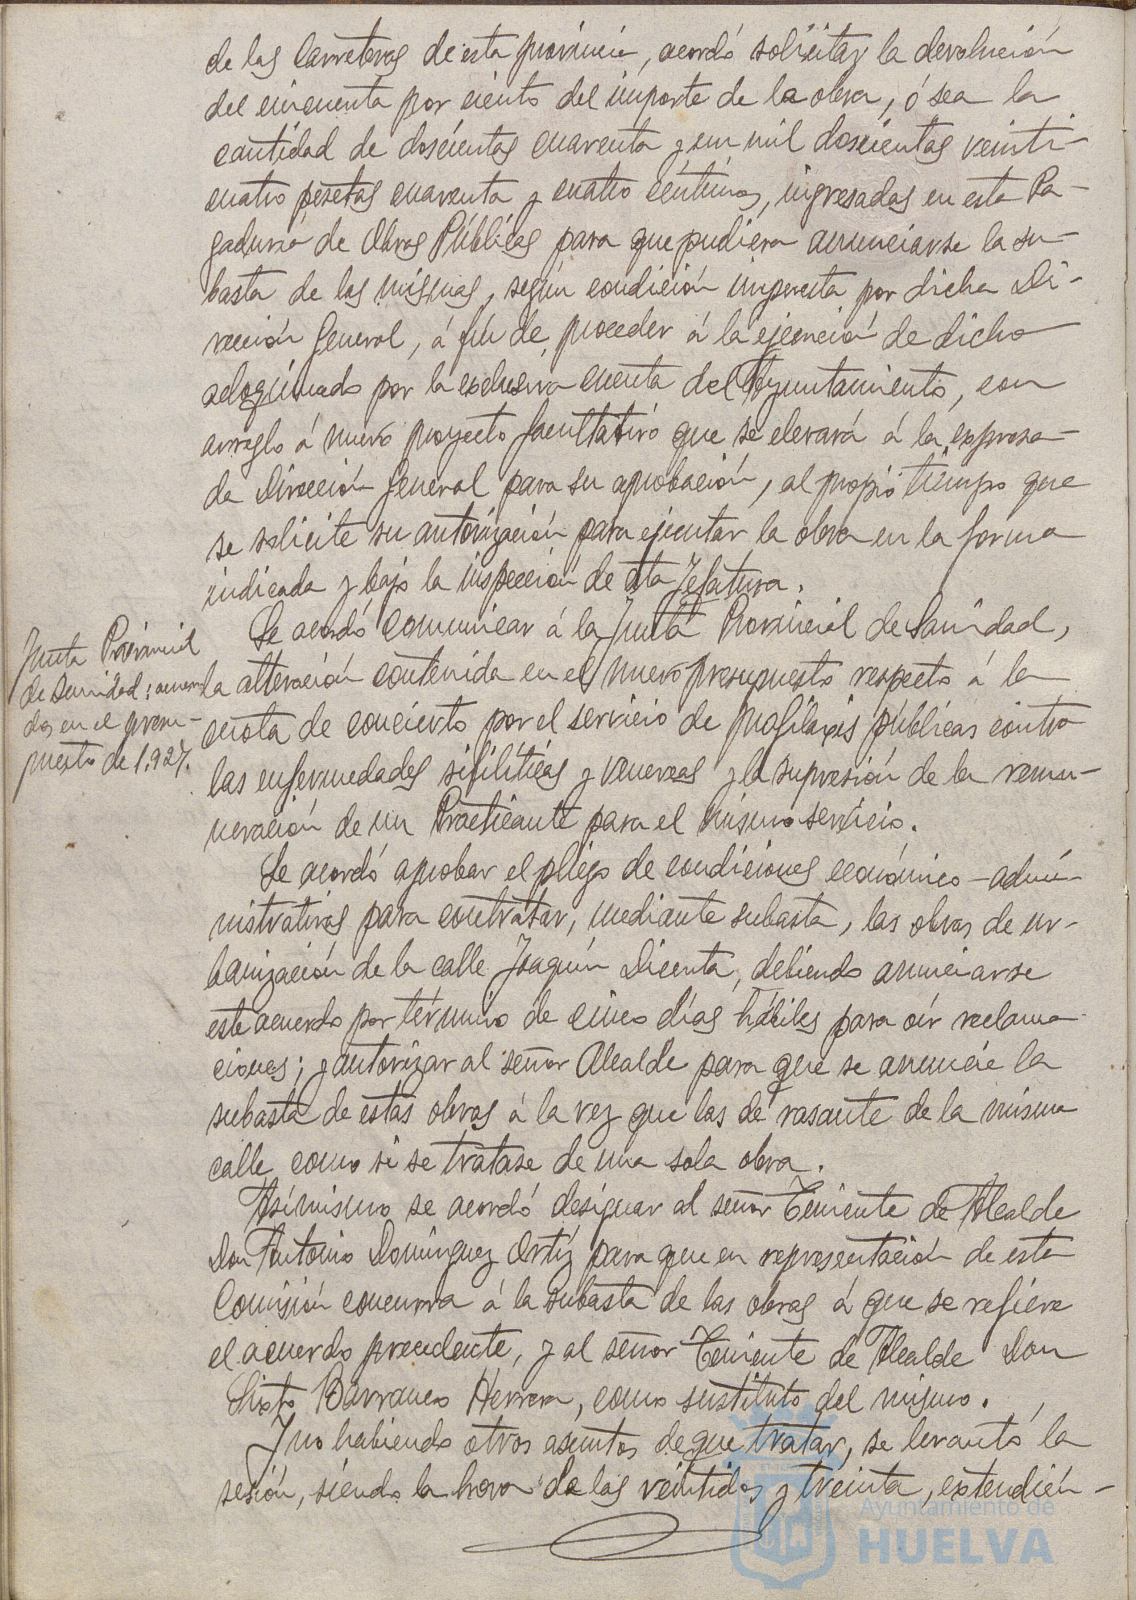 de las Carreteras de esta provincia, acordó solicitar la devolución
del cincuenta por ciento del importe de la obra, ó sea la
cantidad de doscientas cuarenta y un mil doscientas veinti-
cuatro pesetas cuarenta y cuatro céntimos, ingresadas en esta Pa-
gaduría de Obras Públicas para que pudiera anunciarse la su-
basta de las mismas, según condición impuesta por dicha Di-
rección General, á fin de proceder á la ejecución de dicho
adoquinado por la exclusiva cuenta del Ayuntamiento, con
arreglo á nuevo proyecto facultativo que se elevará á la expresa-
da Dirección General para su aprobación, al propio tiempo que
se solicite su autorización para ejecutar la obra en la forma
indicada y bajo la inspección de esta Jefatura.
Junta Provincial
de Sanidad; acuer
dos en el presu-
puesto de 1.927.
Se acordó comunicar á la Junta Provincial de Sanidad,
la alteración contenida en el nuevo presupuesto respecto á la
cuota de concierto por el servicio de profilaxis públicas contra
las enfermedades sifilíticas y venereas y la supresión de la remu-
neración de un Practicante para el mismo servicio.
Se acordó aprobar el pliego de condiciones económico-admi-
nistrativas para contratar, mediante subasta, las obras de ur-
banización de la calle Joaquín Dicenta, debiendo anunciarse
este acuerdo por término de cinco días hábiles para oír reclama
ciones; y autorizar al señor Alcalde para que se anuncie la
subasta de estas obras á la vez que las de rasante de la misma
calle como si se tratase de una sola obra.
Asimismo se acordó designar al señor Teniente de Alcalde
Don Antonio Domínguez Ortíz para que en representación de esta
Comisión concurra á la subasta de las obras á que se refiere
el acuerdo precedente, y al señor Teniente de Alcalde Don
Sixto Barranco Herrera, como sustituto del mismo.
Y no habiendo otros asuntos de que tratar, se levantó la
sesión, siendo la hora de las veintidos y treinta, extendién-
Ayuntamiento de
HUELVA